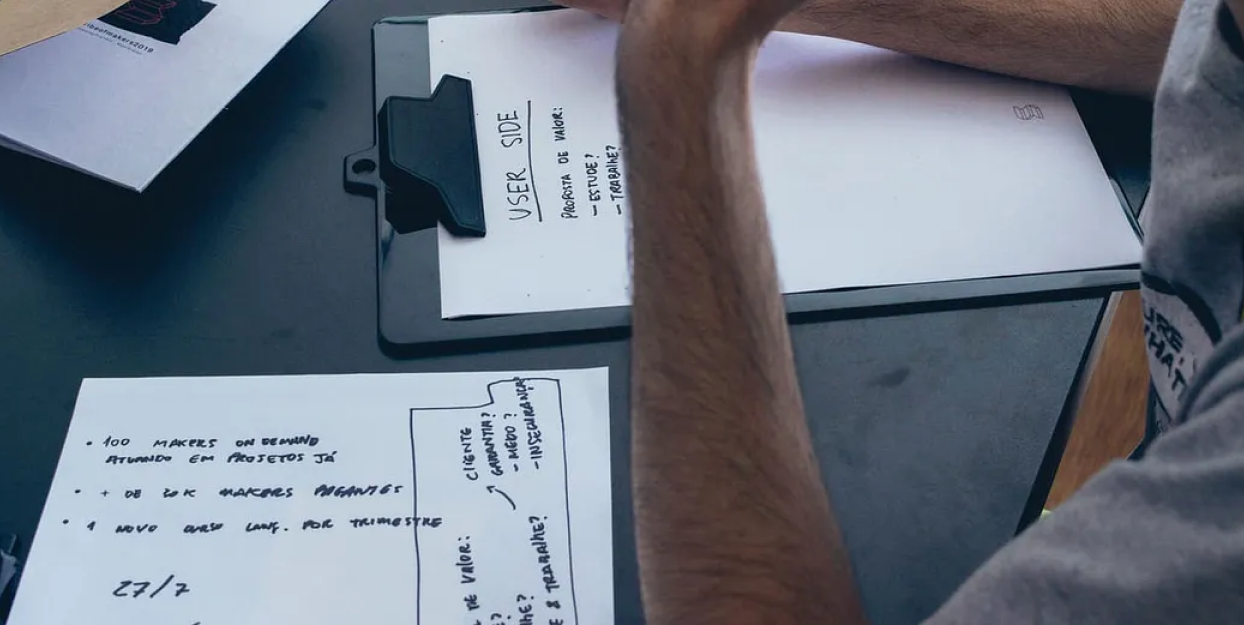 USER SIDE
PROPOSTA DE VALOR:
- ESTUDE?
- TRABALHE?
• 100 MAKERS ON DEMAND
ATUANDO EM PROJETOS JÁ
• + DE 20K MAKERS PAGANTES
• 1 NOVO CURSO LANÇ. POR TRIMESTRE
27/7
CLIENTE
GARANTIA?
- MEDO?
- INSEGURANÇA?
DE VALOR:
& TRABALHE?